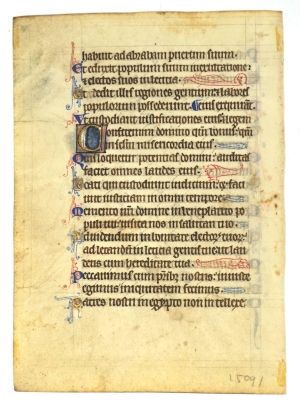 habuit ad abraham puerum suum.
Et eduxit populum suum in exultatione:
& electos suos in leticia.
Et dedit illis regiones gentium: & labores
populorum possederunt. eius exquirant.
Ut custodiant iustificationes eius: & legem
Confitemini domino qm̄ bonus: qm̄
in sclm̄ misericordia eius.
Quis loquetur potentias domini: auditas
faciet omnes laudes eius.
Beati qui custodiunt iudicium: & faci
unt iusticiam in omni tempore.
Memento nr̄i domine in beneplacito po
puli tui: visita nos in salutari tuo.
Ad videndum in bonitate electoꝝ tuoꝝ:
ad letandū in leticia gentis tue: ut lau
deris cum hereditate tua.
Peccavimus cum pr̄ibꝫ nostris: iniuste
egimus iniquitatem fecimus.
Patres nostri in egypto non intellexe